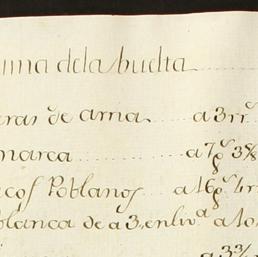 uma dela buelta
eras de arma a 3 rr.s
marca a 7 p.s 3 3/4
acos Poblanos a 16 p.s 4 r
blanca de a 3, en liv.a a 10
a 3 3/4